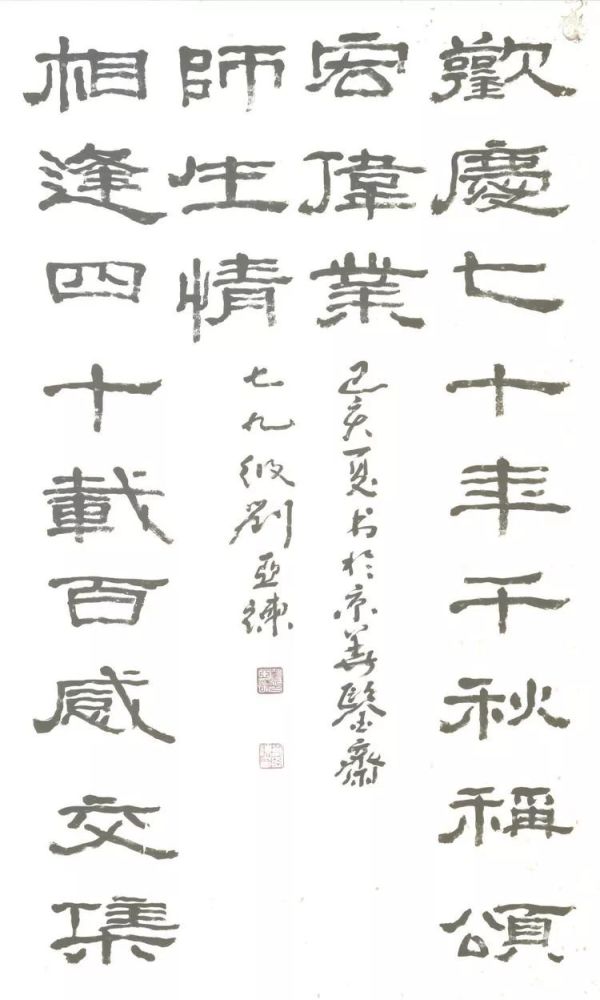 歡慶七十年千秋稱頌
宏偉業
相逢四十載百感交集
師生情
己亥夏书於京鑒齋
七九级劉亞